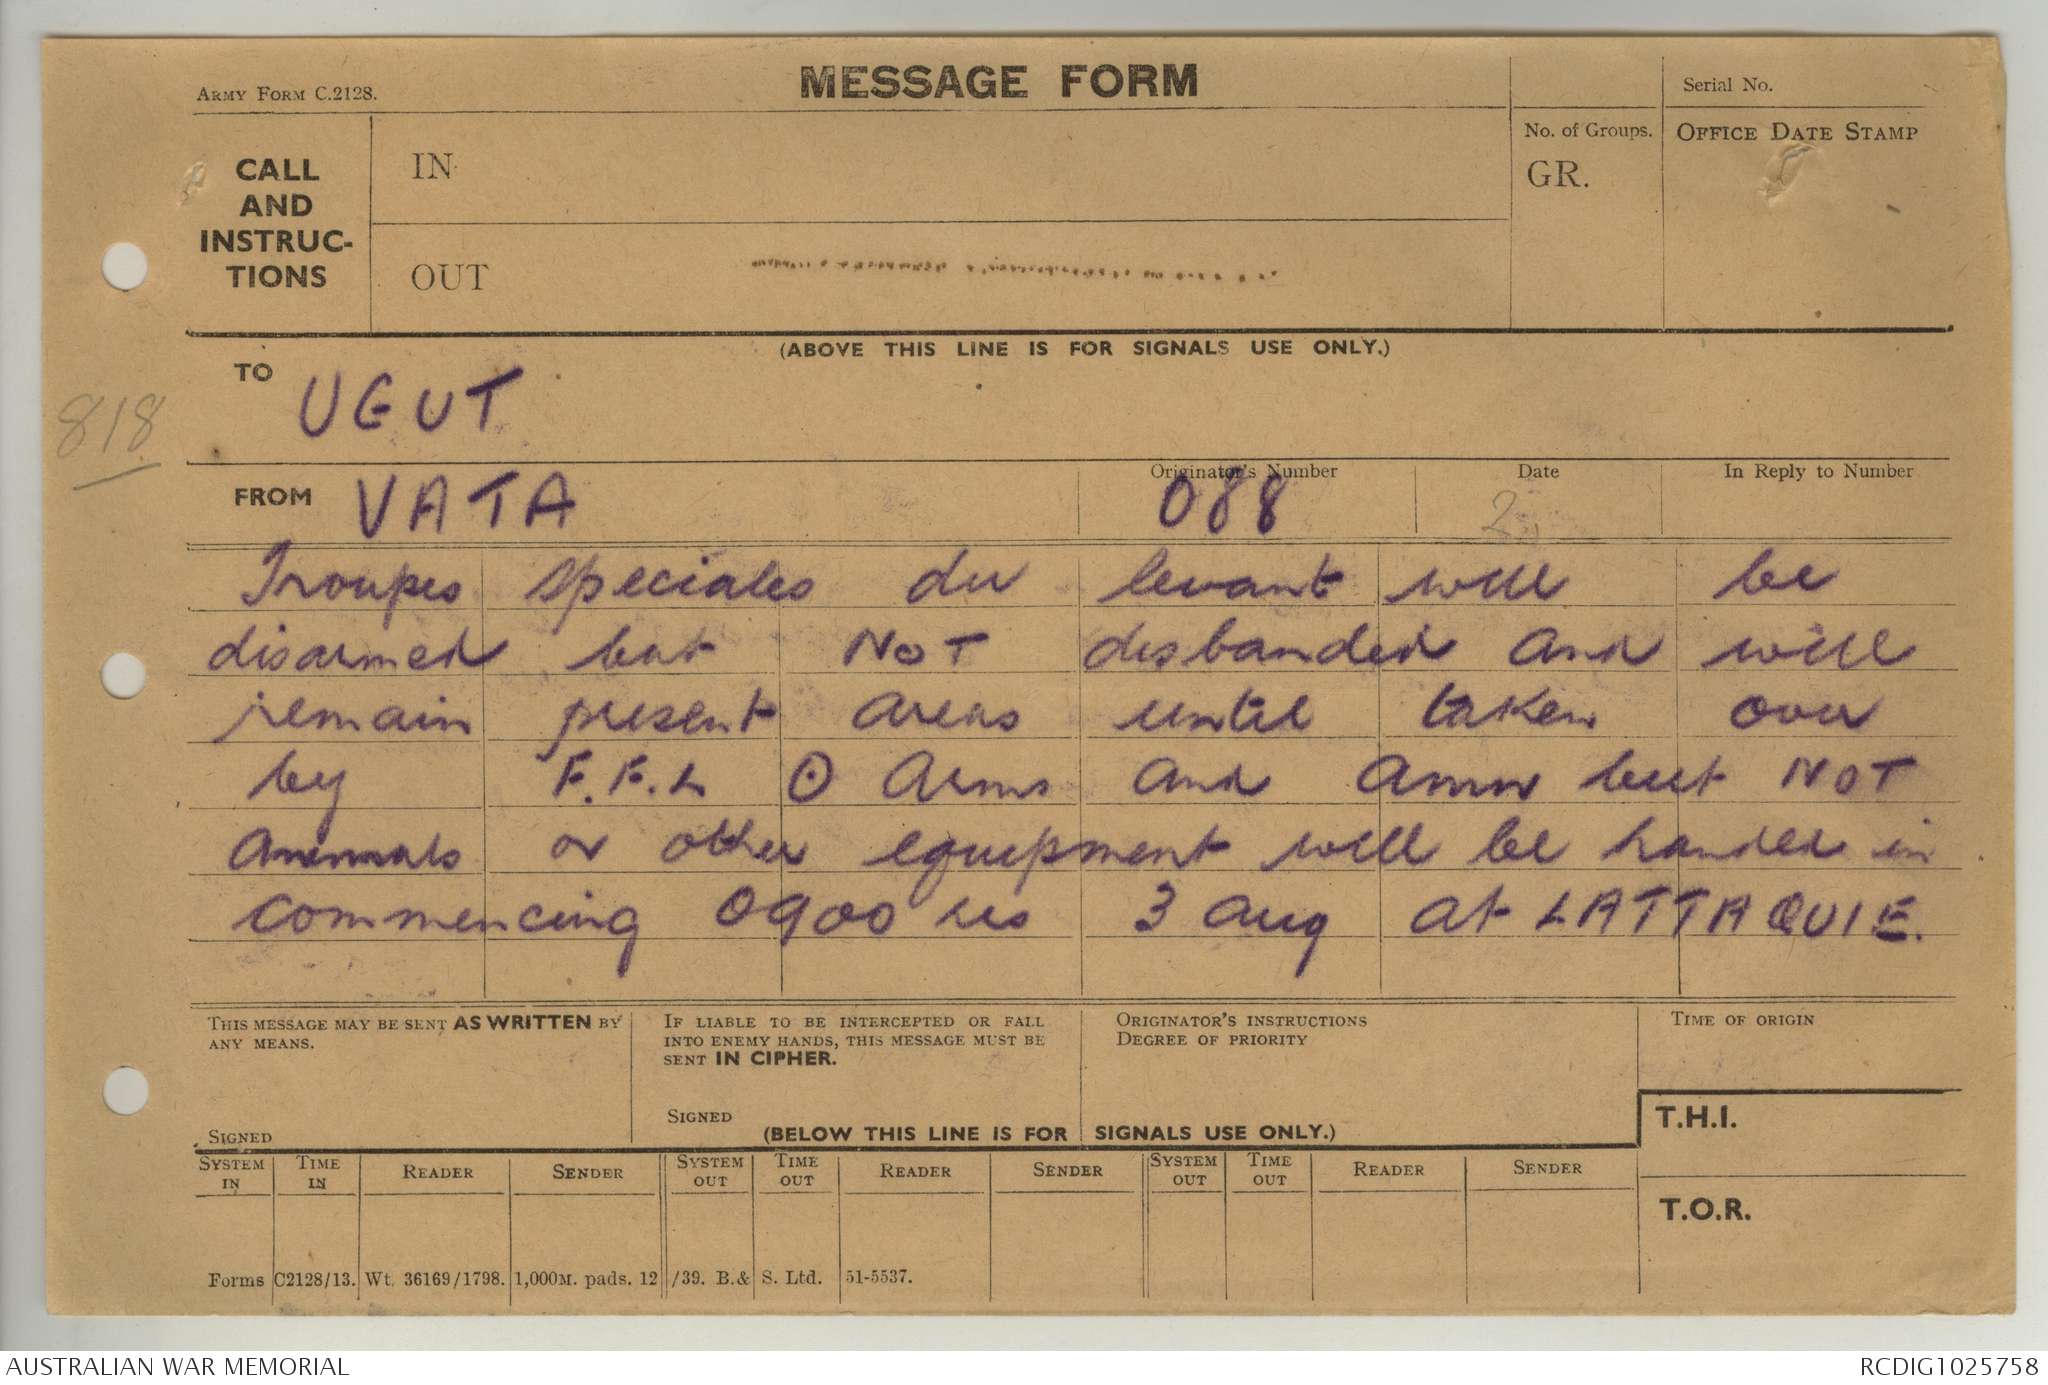 ARMY FORM C.2128.
MESSAGE FORM
Serial No.
CALL AND INSTRUC-TIONS
IN
No. of Groups.
GR.
OFFICE DATE STAMP
OUT
(ABOVE THIS LINE IS FOR SIGNALS USE ONLY.)
818
TO UGUT
FROM VATA
Originator's Number 088
Date 2
In Reply to Number
Troupes speciales du levant will be
disarmed but NOT disbanded and will
remain present areas until taken over
by F.F.L ⊙ Arms and Amn but NOT
Animals or other equipment will be handed in
commencing 0900 hrs 3 Aug at LATTAQUIE.
THIS MESSAGE MAY BE SENT AS WRITTEN BY
ANY MEANS.
SIGNED
IF LIABLE TO BE INTERCEPTED OR FALL
INTO ENEMY HANDS, THIS MESSAGE MUST BE
SENT IN CIPHER.
SIGNED
ORIGINATOR'S INSTRUCTIONS
DEGREE OF PRIORITY
TIME OF ORIGIN
T.H.I.
(BELOW THIS LINE IS FOR SIGNALS USE ONLY.)
SYSTEM IN TIME IN READER SENDER SYSTEM OUT TIME OUT READER SENDER SYSTEM OUT TIME OUT READER SENDER
T.O.R.
Forms C2128/13. Wt. 36169/1798. 1,000M. pads. 12/39. B.& S. Ltd. 51-5537.
AUSTRALIAN WAR MEMORIAL
RCDIG1025758